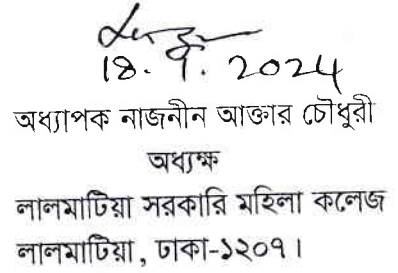 18. 9. 2024
অধ্যাপক নাজনীন আক্তার চৌধুরী
অধ্যক্ষ
লালমাটিয়া সরকারি মহিলা কলেজ
লালমাটিয়া, ঢাকা-১২০৭।